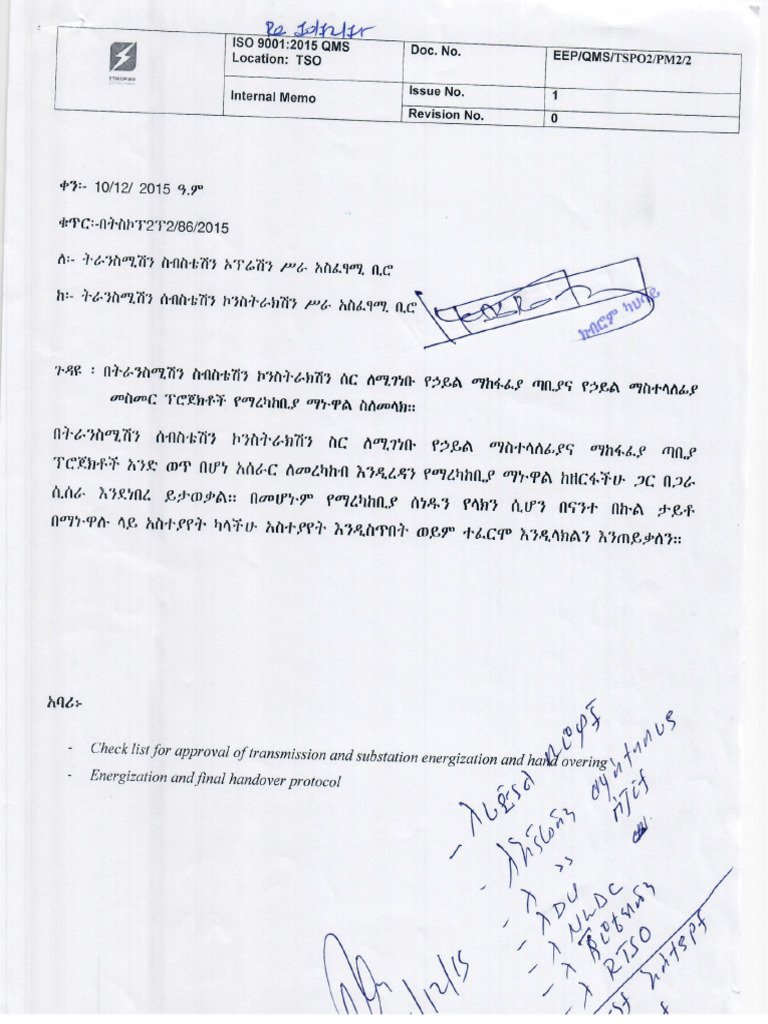 ISO 9001:2015 QMS
Location: TSO
Doc. No.
EEP/QMS/TSPO2/PM2/2
Internal Memo
Issue No.
1
Revision No.
0
ETHIOPIAN
ቀን፡- 10/12/ 2015 ዓ.ም
ቁጥር፡-በትስኮፕ2ፕ2/86/2015
ለ፡- ትራንስሚሽን ስብስቴሽን ኦፕሬሽን ሥራ አስፈፃሚ ቢሮ
ከ፡- ትራንስሚሽን ሰብስቴሽን ኮንስትራክሽን ሥራ አስፈፃሚ ቢሮ
ክብሮም ካህሳይ
ጉዳዩ ፡ በትራንስሚሽን ስብስቴሽን ኮንስትራክሽን ስር ለሚገነቡ የኃይል ማከፋፈያ ጣቢያና የኃይል ማስተላለፊያ
መስመር ፕሮጀክቶች የማረካከቢያ ማኑዋል ስለመላክ።
በትራንስሚሽን ሰብስቴሽን ኮንስትራክሽን ስር ለሚገነቡ የኃይል ማስተላለፊያና ማከፋፈያ ጣቢያ
ፕሮጀክቶች አንድ ወጥ በሆነ አሰራር ለመረካከብ እንዲረዳን የማረካከቢያ ማኑዋል ከዘርፋችሁ ጋር በጋራ
ሲሰራ እንደነበረ ይታወቃል። በመሆኑም የማረካከቢያ ሰነዱን የላክን ሲሆን በናንተ በኩል ታይቶ
በማኑዋሉ ላይ አስተያየት ካላችሁ አስተያየት እንዲሰጥበት ወይም ተፈርሞ እንዲላክልን እንጠይቃለን።
አባሪ፦
- Check list for approval of transmission and substation energization and hand overing
- Energization and final handover protocol
- ለ DU
- ለ NLDC
- ለ RTSO
/12/15